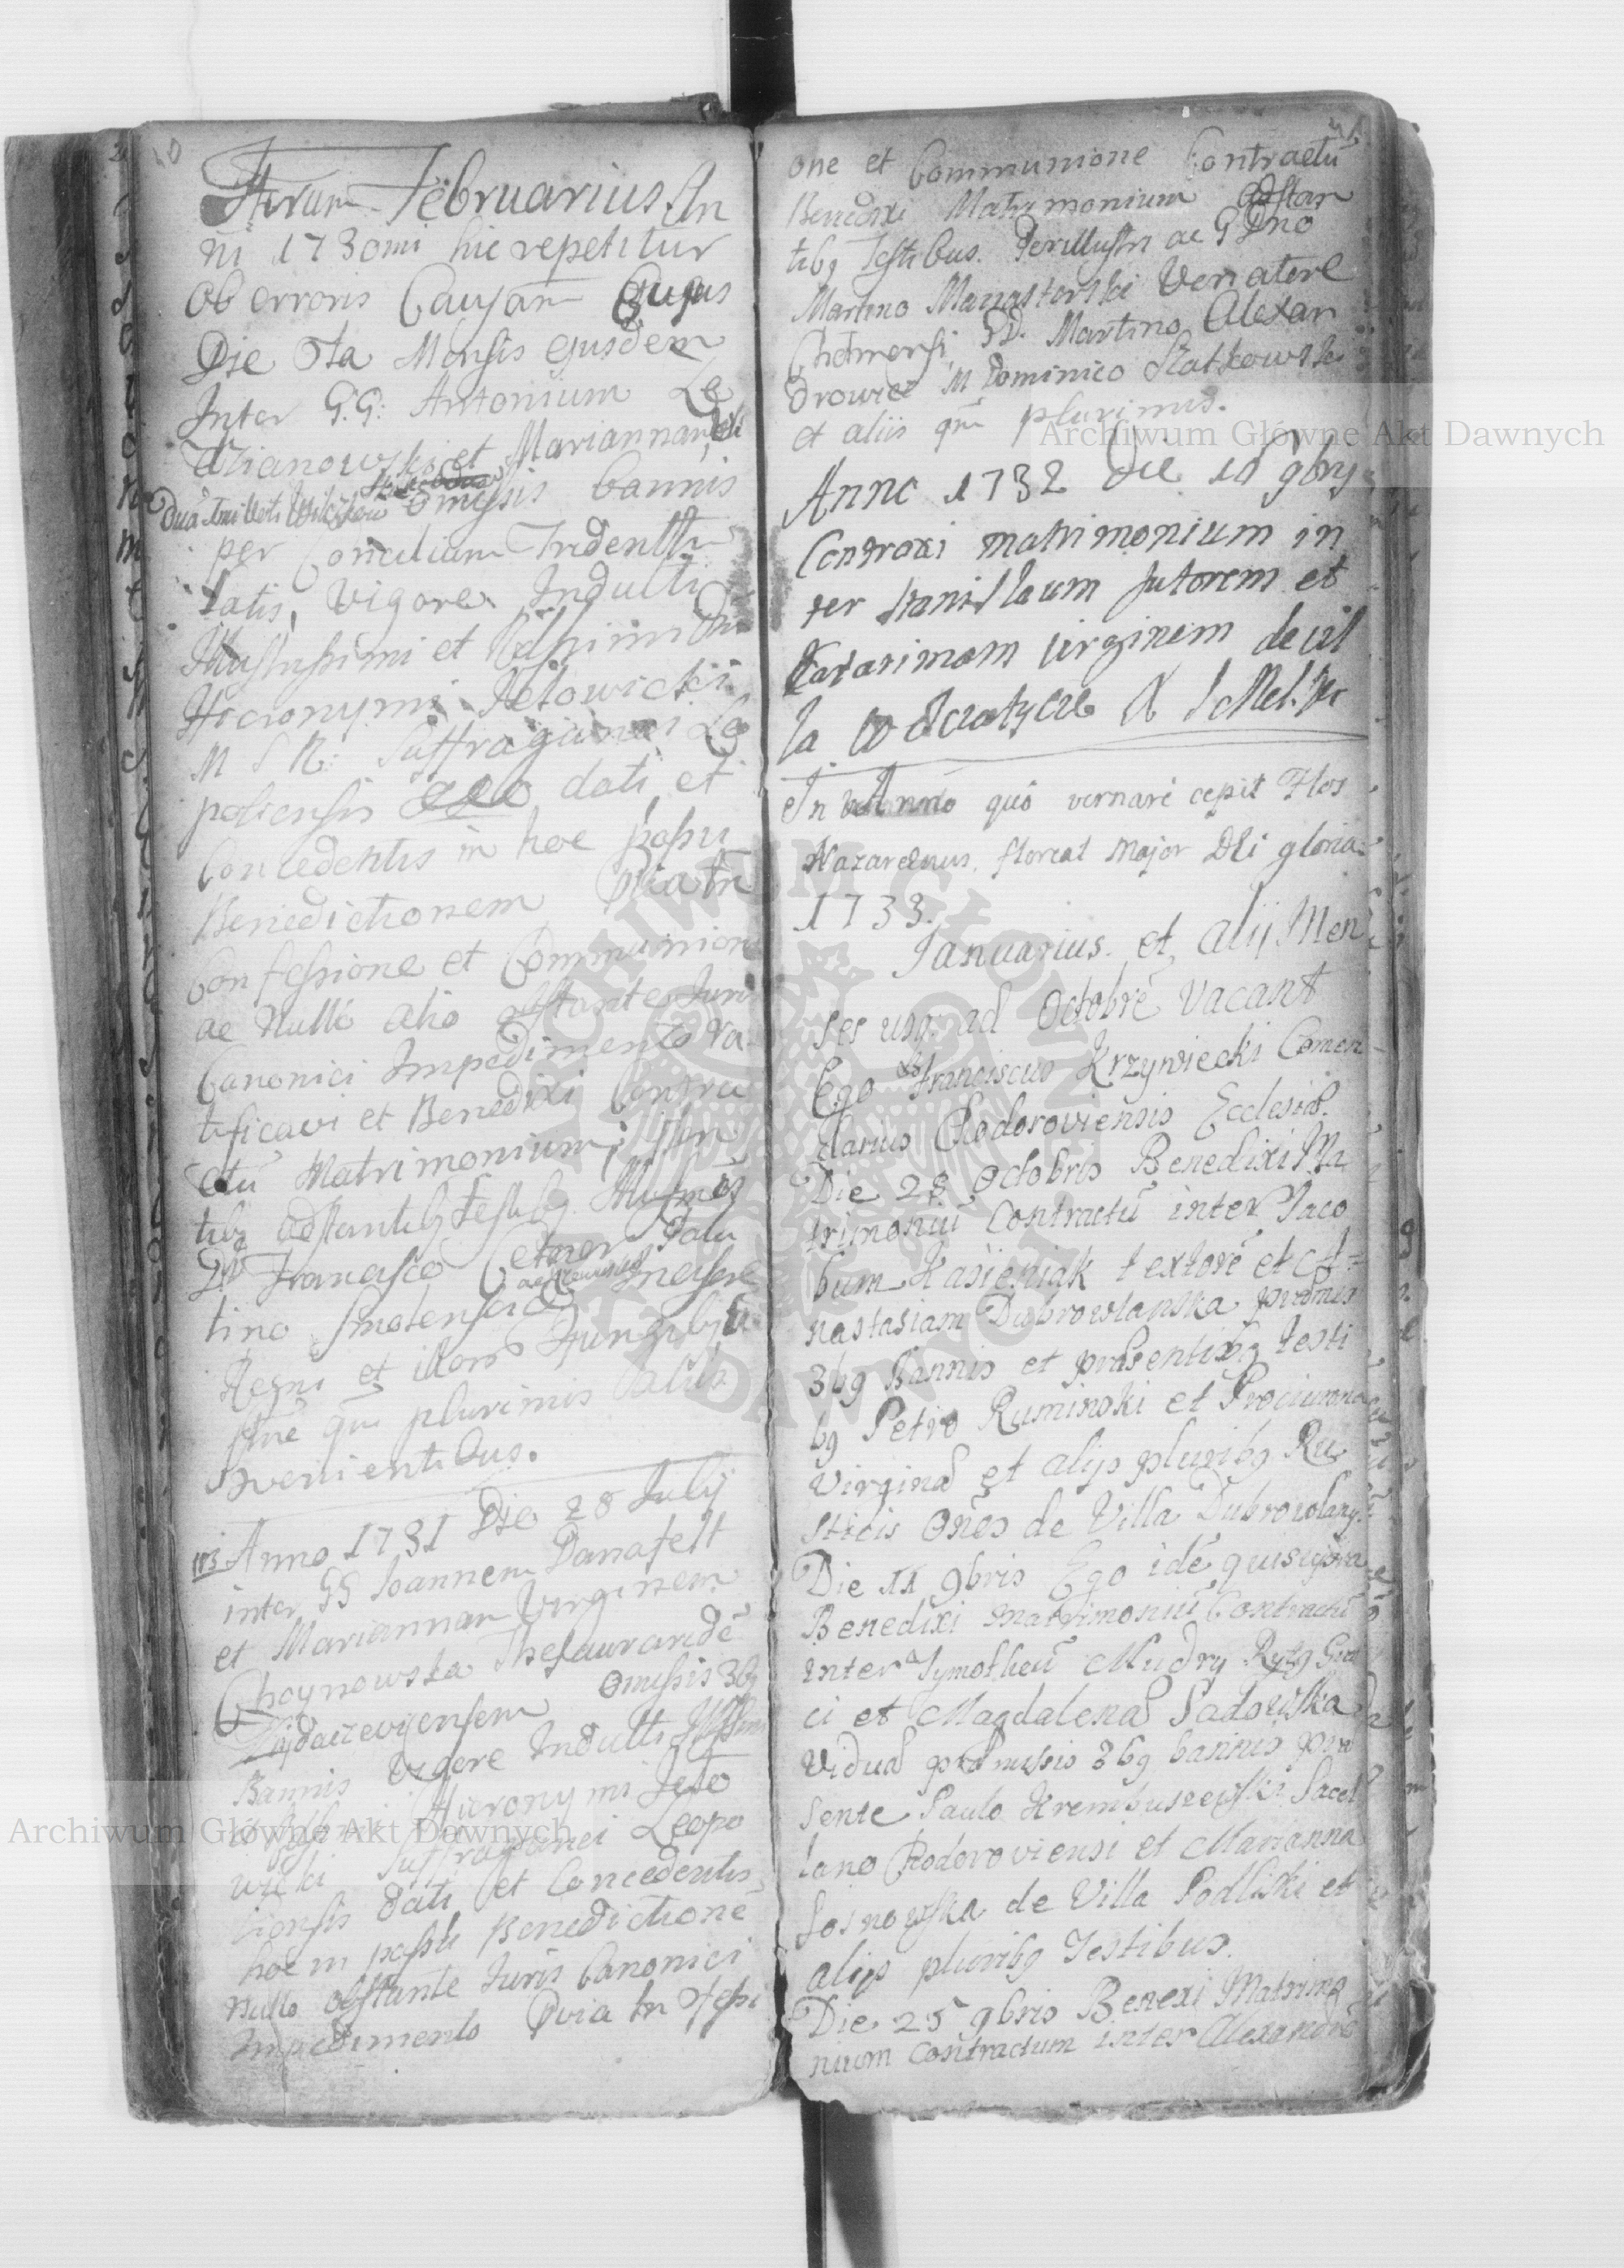 Iterum Februarius An
ni 1730mi hic repetitur
ob erroris Causam Cujus
Die 8ta Mensis ejusdem
Inter G.G: Antonium Le
wianowski et Mariannam
omissis bannis
per Concilium Tridenti
latis, Vigore Indulti
Illustrissimi et Rdssimi Dni
Hieronymi Jełowicki
M S R: Suffraganei Leo
poliensis dati et
Concedentis in hoc passu
Benedictionem Praevia
Confessione et Communione
ac Nullo alio obstante Juris
Canonici Impedimento ra
tificavi et Benedixi Contra
ctū Matrimonium, praesen
tibq adstantibq Testibq
D. Francisco Cetner Pala
tino Smolenscensi
Regni et
ptne qm plurimis aliis
Convenientibus.
Anno 1731 Die 28 Julij
inter GG Joannem Danafelt
et Mariannam Virginem
Choynowska Thesauraridē
Zydaczeviensem omissis 3bq
Bannis Vigore Indulti Illssimi
et Rssimi Hieronymi Jeło
wicki Suffraganei Leopo
liensis dati et Concedentis
hoc in passu Benedictionē
Nullo obstante Juris Canonici
Impedimento Pvia
one et Communione Contractū
Benedixi Matrimonium adstan
tibq Testibus. Perillustri ac G Dno
Martino Manastorski Venatore
Chelmensi, GD. Martino Alexan
drowicz M Dominico Statkowski
et aliis qm plurimis.
Anno 1732 Die 10 9bris
Contraxi matrimonium in
ter Stanislaum Sutorem et
Katarinam virginem de vil
la
In Anno quo vernare cepit Flos
Nazarenus, floreat Major Dei gloria.
1733.
Januarius. et alij Men
ses usq ad Octobrē Vacant
Ego Franciscus Krzywiecki Comen
darius Chodoroviensis Ecclesiae.
Die 28 Octobris Benedixi Ma
trimoniū Contractū inter Jaco
bum Kasieniak textorē et A=
nastasiam Dubrowlanska praemis
3bq Bannis et praesentibq testi
bq Petro Ruminski et
Virgine et alijs pluribq Ru
sticis Oñes de Villa Dubrowlany.
Die 11 9bris Ego idē qui supra
Benedixi matrimoniū Contractū
inter Tymotheū Mudry Rytq Grae
ci et Magdalena Sadowska
Vidua praemissis 3bq bannis prae
sente Paulo Krembuszewski Sacel
lano Chodoroviensi et Marianna
Sosnowska de Villa Podliski et
alijs pluribq Testibus.
Die 25 9bris Benexi Matrimo
nium Contractum inter Alexandrē
Archiwum Główne Akt Dawnych
Archiwum Główne Akt Dawnych
ARCHIWUM GŁÓWNE AKT DAWNYCH